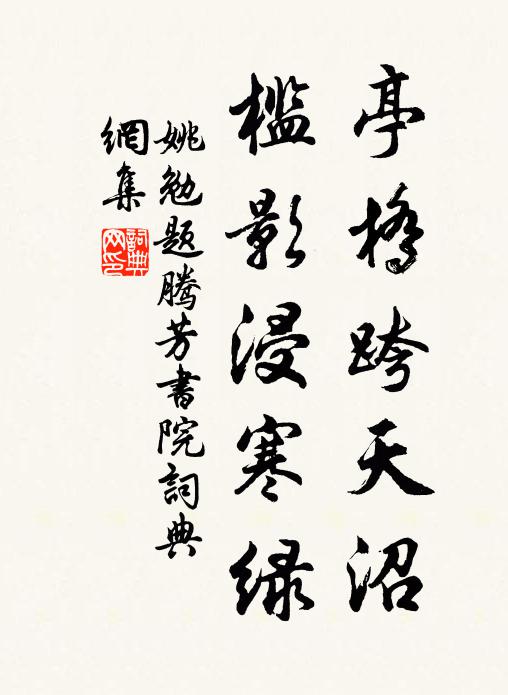 亭橋跨天沼
檻影浸寒绿
姚勉題騰芳書院詞典
網集
詞典网印